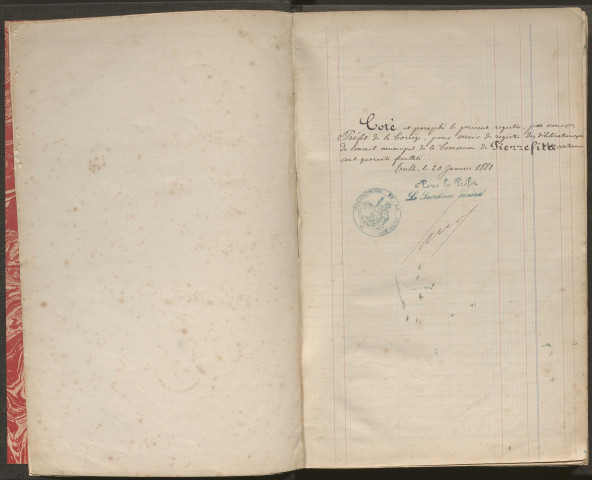 Coté et paraphé le présent registre, par nous
Préfet de la Corrèze, pour servir de registre des délibérations
du Conseil municipal de la Commune de Pierrefitte contenant
cent quarante feuillets
Tulle, le 20 Janvier 1881
Pour le Préfet
Le Secrétaire Général